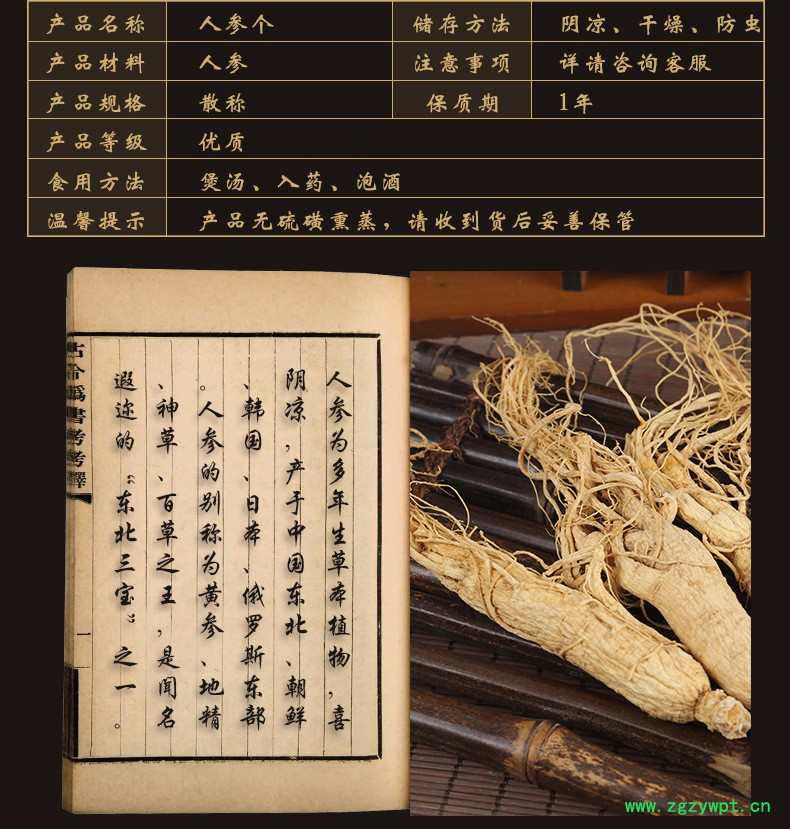 产品名称 人参个 储存方法 阴凉、干燥、防虫
产品材料 人参 注意事项 详请咨询客服
产品规格 散称 保质期 1年
产品等级 优质
食用方法 煲汤、入药、泡酒
温馨提示 产品无硫磺熏蒸，请收到货后妥善保管
人参为多年生草本植物，喜
阴凉，产于中国东北、朝鲜
、韩国、日本、俄罗斯东部
。人参的别称为黄参、地精
、神草、百草之王，是闻名
遐迩的“东北三宝”之一。
古今偽書考考釋
一
www.zgzywpt.cn